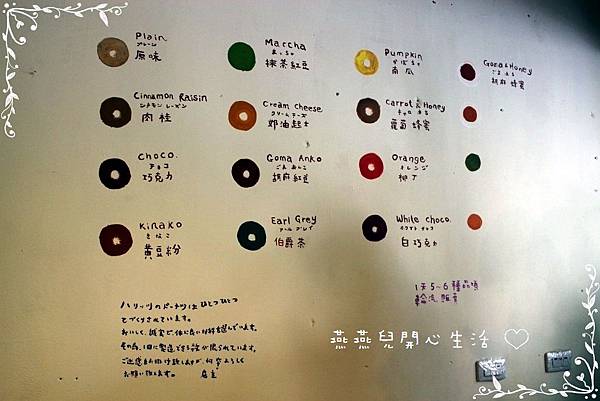 Plain
プレーン
原味
Marcha
まっちゃ
抹茶紅豆
Pumpkin
かぼちゃ
南瓜
Goma&Honey
胡麻蜂蜜
Cinnamon Raisin
シナモンレーズン
肉桂
Cream cheese
クリームチーズ
奶油起士
Carrot & Honey
蘿蔔蜂蜜
Choco.
チョコ
巧克力
Goma Anko
ごまあんこ
胡麻紅豆
Orange
オレンジ
柳丁
Kinako
きなこ
黄豆粉
Earl Grey
アールグレイ
伯爵茶
White choco.
ホワイトチョコ
白巧克力
1天5~6種品項
輪流販賣
ハリッツのドーナツはひとつひとつ
てづくりされています。
おいしく、誠実で体に良い材料を選んでいます。
その為、1日に製造できる数が限られています。
ご迷惑お掛け致しますが、何卒よろしく
お願い致します。 店主
燕燕兒開心生活♡